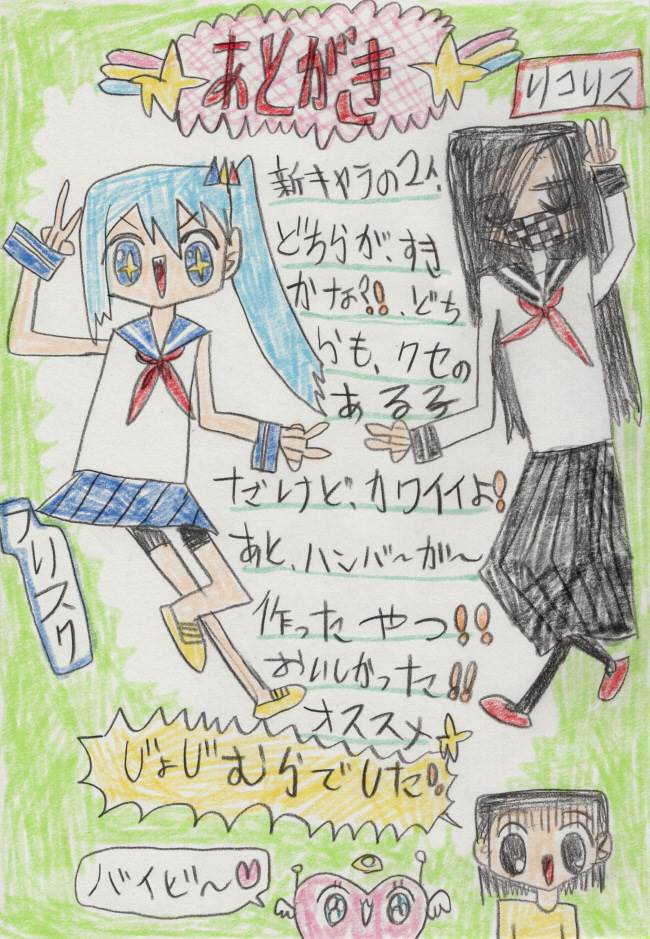 あとがき
リコリス
新キャラの2人、
どちらが、すき
かな?!!、どち
らも、クセの
ある子
だけど、カワイイよ!
あと、ハンバ〜ガ〜
作ったやつ!!
おいしかった!!
オススメ
フリスク
じょじむらでした!
バイビ〜♥